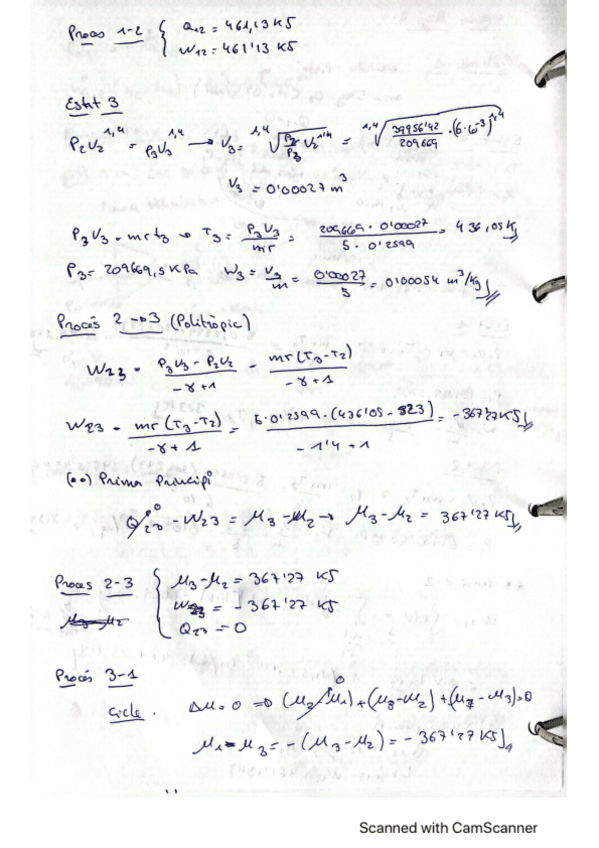 Procés 1-2 { Q12 = 461,13 KJ
W12 = 461'13 KJ
Estat 3
P2V2^1,4 = P3V3^1,4 → V3 = ^1,4√(P2/P3 V2^1'4) = ^1,4√(39956'42/209669 · (6·10^-3)^1,4)
V3 = 0'00027 m³
P3V3 = mrt3 → T3 = P3V3/mr = 209669 · 0'00027/5 · 0'2599 = 436,05K
P3 = 209669,5 KPa W3 = V3/m = 0'00027/5 = 0'00054 m³/kg
Procés 2→3 (Politròpic)
W23 = P3V3 - P2V2/-γ+1 = mr(T3-T2)/-γ+1
W23 = mr(T3-T2)/-γ+1 = 5·0'2599·(436'05 - 323)/-1'4+1 = -367'27KJ
(••) Prima Principi
Q23^0 - W23 = U3 - U2 → U3 - U2 = 367'27 KJ
Procés 2-3 { U3-U2 = 367'27 KJ
W23 = -367'27 KJ
Q23 = 0
Procés 3-1
Cicle. ΔU = 0 ⇒ (U2-U1)^0 + (U3-U2) + (U1-U3) = 0
U1-U3 = -(U3-U2) = -367'27 KJ
Scanned with CamScanner